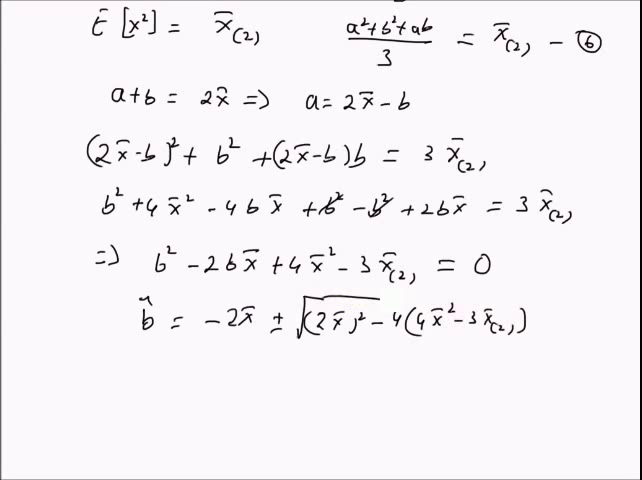 E [x²] = x̄₍₂₎   (a²+b²+ab)/3 = x̄₍₂₎ – ⑥
a+b = 2x̄ => a = 2x̄ – b
(2x̄–b)² + b² + (2x̄–b)b = 3 x̄₍₂₎
b² + 4x̄² – 4bx̄ + b² – b² + 2bx̄ = 3 x̄₍₂₎
=> b² – 2bx̄ + 4x̄² – 3x̄₍₂₎ = 0
b̂ = – 2x̄ ± √(2x̄)² – 4(4x̄² – 3x̄₍₂₎)